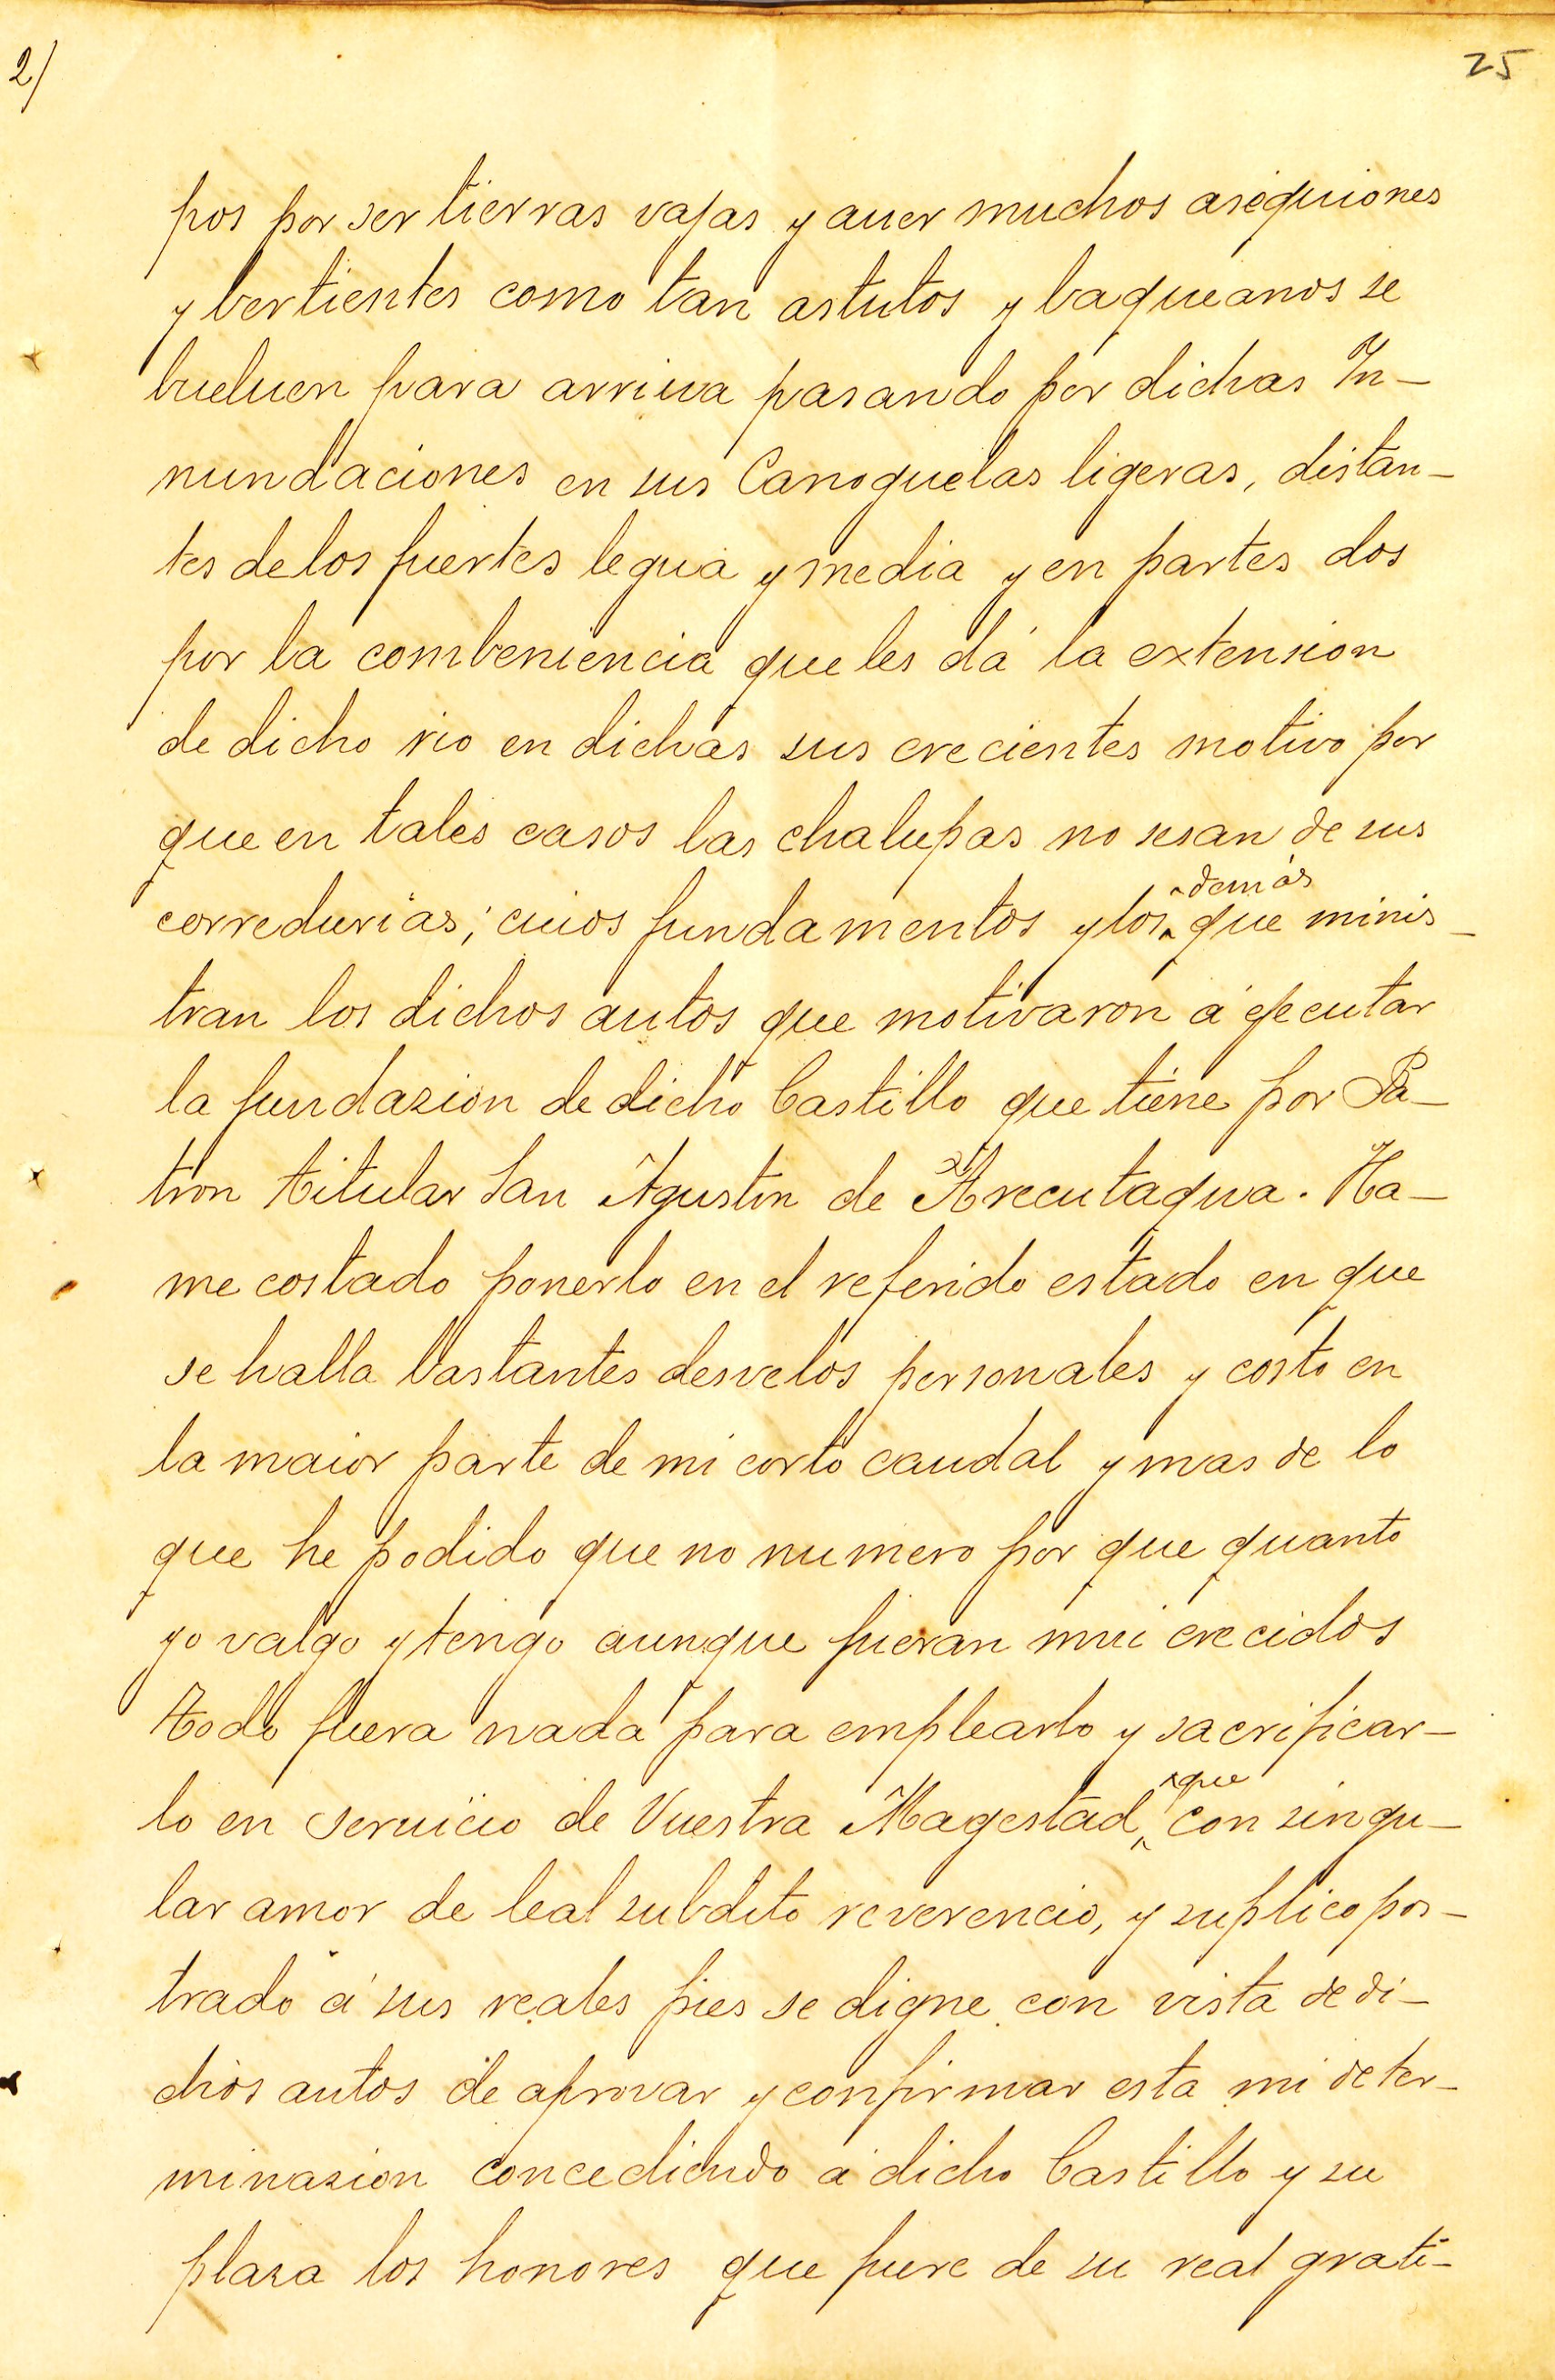 2/
25
pos por ser tierras vajas y auer muchos asequiones
y bertientes como tan astutos y baqueanos se
bueluen para arriua pasando por dichas In-
nundaciones en sus Canoguelas ligeras, distan-
tes de los fuertes legua y media y en partes dos
por la combeniencia que les dá la extension
de dicho rio en dichas sus crecientes motivo por
que en tales casos las chalupas no sesan de sus
corredurias; cuios fundamentos y los demás que minis-
tran los dichos autos que motivaron á ejecutar
la fundazion de dicho Castillo que tiene por Pa-
tron titular San Agustin de Arecutagua. Ha-
me costado ponerlo en el referido estado en que
se halla bastantes desvelos personales y costo en
la maior parte de mi corto caudal y mas de lo
que he podido que no numero por que quanto
yo valgo y tengo aunque fueran mui crecidos
todo fuera nada para emplearlo y sacrificar-
lo en seruicio de Vuestra Magestad, que con singu-
lar amor de leal subdito reverencio, y suplico pos-
trado á sus reales pies se digne con vista de di-
chos autos de aprovar y confirmar esta mi deter-
minasion concediendo á dicho Castillo y su
plasa los honores que fuere de su real grati-